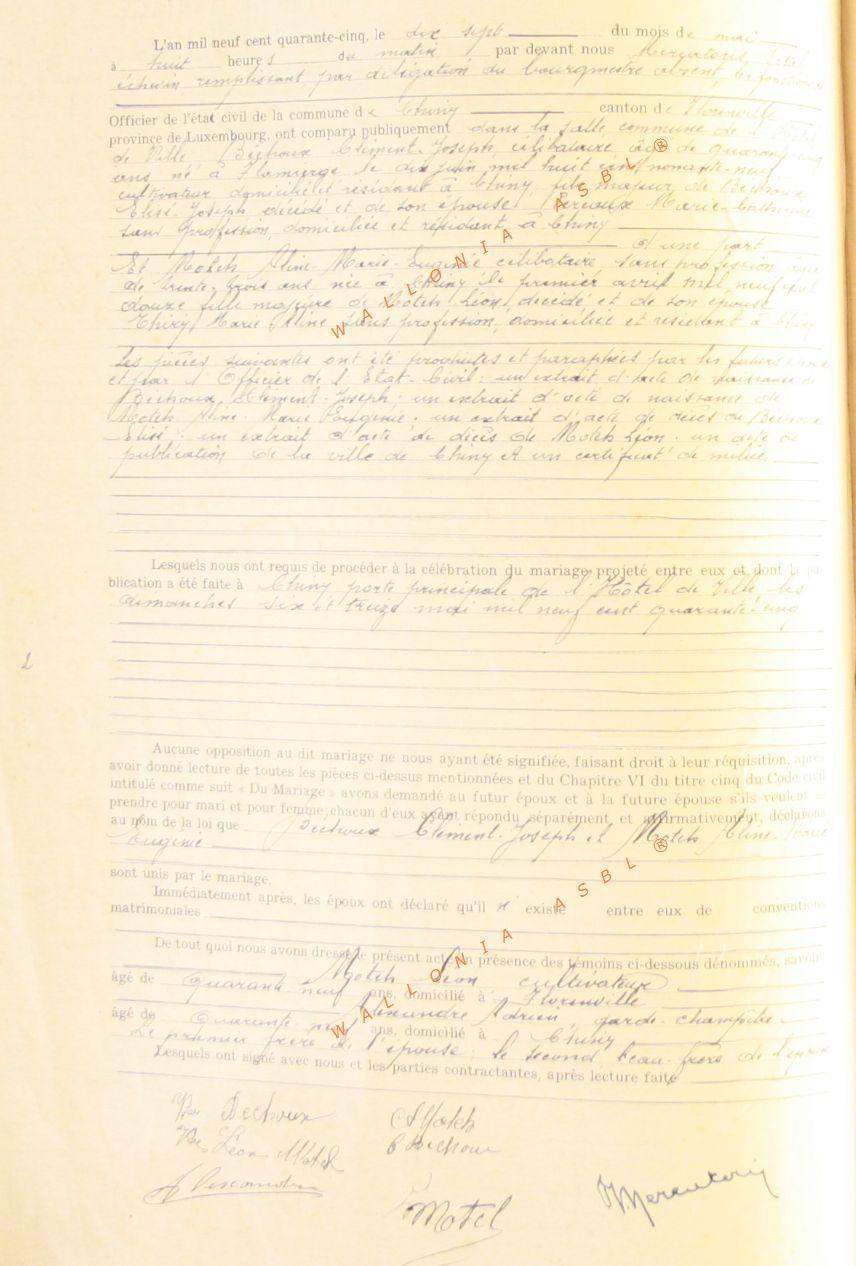 L'an mil neuf cent quarante-cinq, le dix sept du mois de mai
à huit heures du matin par devant nous
échevin remplissant par délégation du bourgmestre absent, les fonctions
Officier de l'état civil de la commune de Chiny canton de Florenville
province de Luxembourg, ont comparu publiquement dans la salle commune de l'Hôtel
de Ville, Bechoux Clément-Joseph célibataire âgé de quarante-cinq
ans né à le dix juin mil huit cent nonante-neuf
cultivateur domicilié et résidant à Chiny, fils majeur de Bechoux
Elisé-Joseph décédé et de son épouse Marie-Catherine
sans profession, domiciliée et résidant à Chiny
d'une part
Et Motch Aline-Marie-Eugénie célibataire sans profession âgée
de trente-trois ans née à Chiny le premier avril mil neuf cent
douze fille majeure de Motch Léon, décédé et de son épouse
Thiry Marie Aline sans profession, domiciliée et résidant à Chiny
Les pièces suivantes ont été produites et paraphées par les futurs époux
et par l'Officier de l'Etat-Civil: un extrait d'acte de naissance de
Bechoux Clément-Joseph; un extrait d'acte de naissance de
Motch Aline-Marie Eugénie; un extrait d'acte de décès de Bechoux
Elisé; un extrait d'acte de décès de Motch Léon; un acte de
publication de la ville de Chiny et un certificat de milice.
Lesquels nous ont requis de procéder à la célébration du mariage projeté entre eux et dont la pu-
blication a été faite à Chiny porte principale de l'Hôtel de Ville, les
dimanches six et treize mai mil neuf cent quarante-cinq
2
Aucune opposition au dit mariage ne nous ayant été signifiée, faisant droit à leur réquisition, après
avoir donné lecture de toutes les pièces ci-dessus mentionnées et du Chapitre VI du titre cinq du Code civil
intitulé comme suit « Du Mariage » avons demandé au futur époux et à la future épouse s'ils veulent se
prendre pour mari et pour femme; chacun d'eux ayant répondu séparément, et affirmativement, déclarons
au nom de la loi que Bechoux Clément-Joseph et Motch Aline-Marie
Eugénie
sont unis par le mariage.
Immédiatement après, les époux ont déclaré qu'il n'existe entre eux de conventions
matrimoniales
De tout quoi nous avons dressé le présent acte en présence des témoins ci-dessous dénommés, savoir
Motch Léon cultivateur
âgé de quarante neuf ans, domicilié à Florenville
Alexandre Adrien, garde-champêtre
âgé de quarante- ans, domicilié à Chiny
Le premier frère de l'épouse; le second, beau-frère de l'épouse
Lesquels ont signé avec nous et les parties contractantes, après lecture faite
Bechoux AMotch
Léon Motch C Bechoux
Alexandre
Motch
WALLONIA ASBL ®
WALLONIA ASBL ®